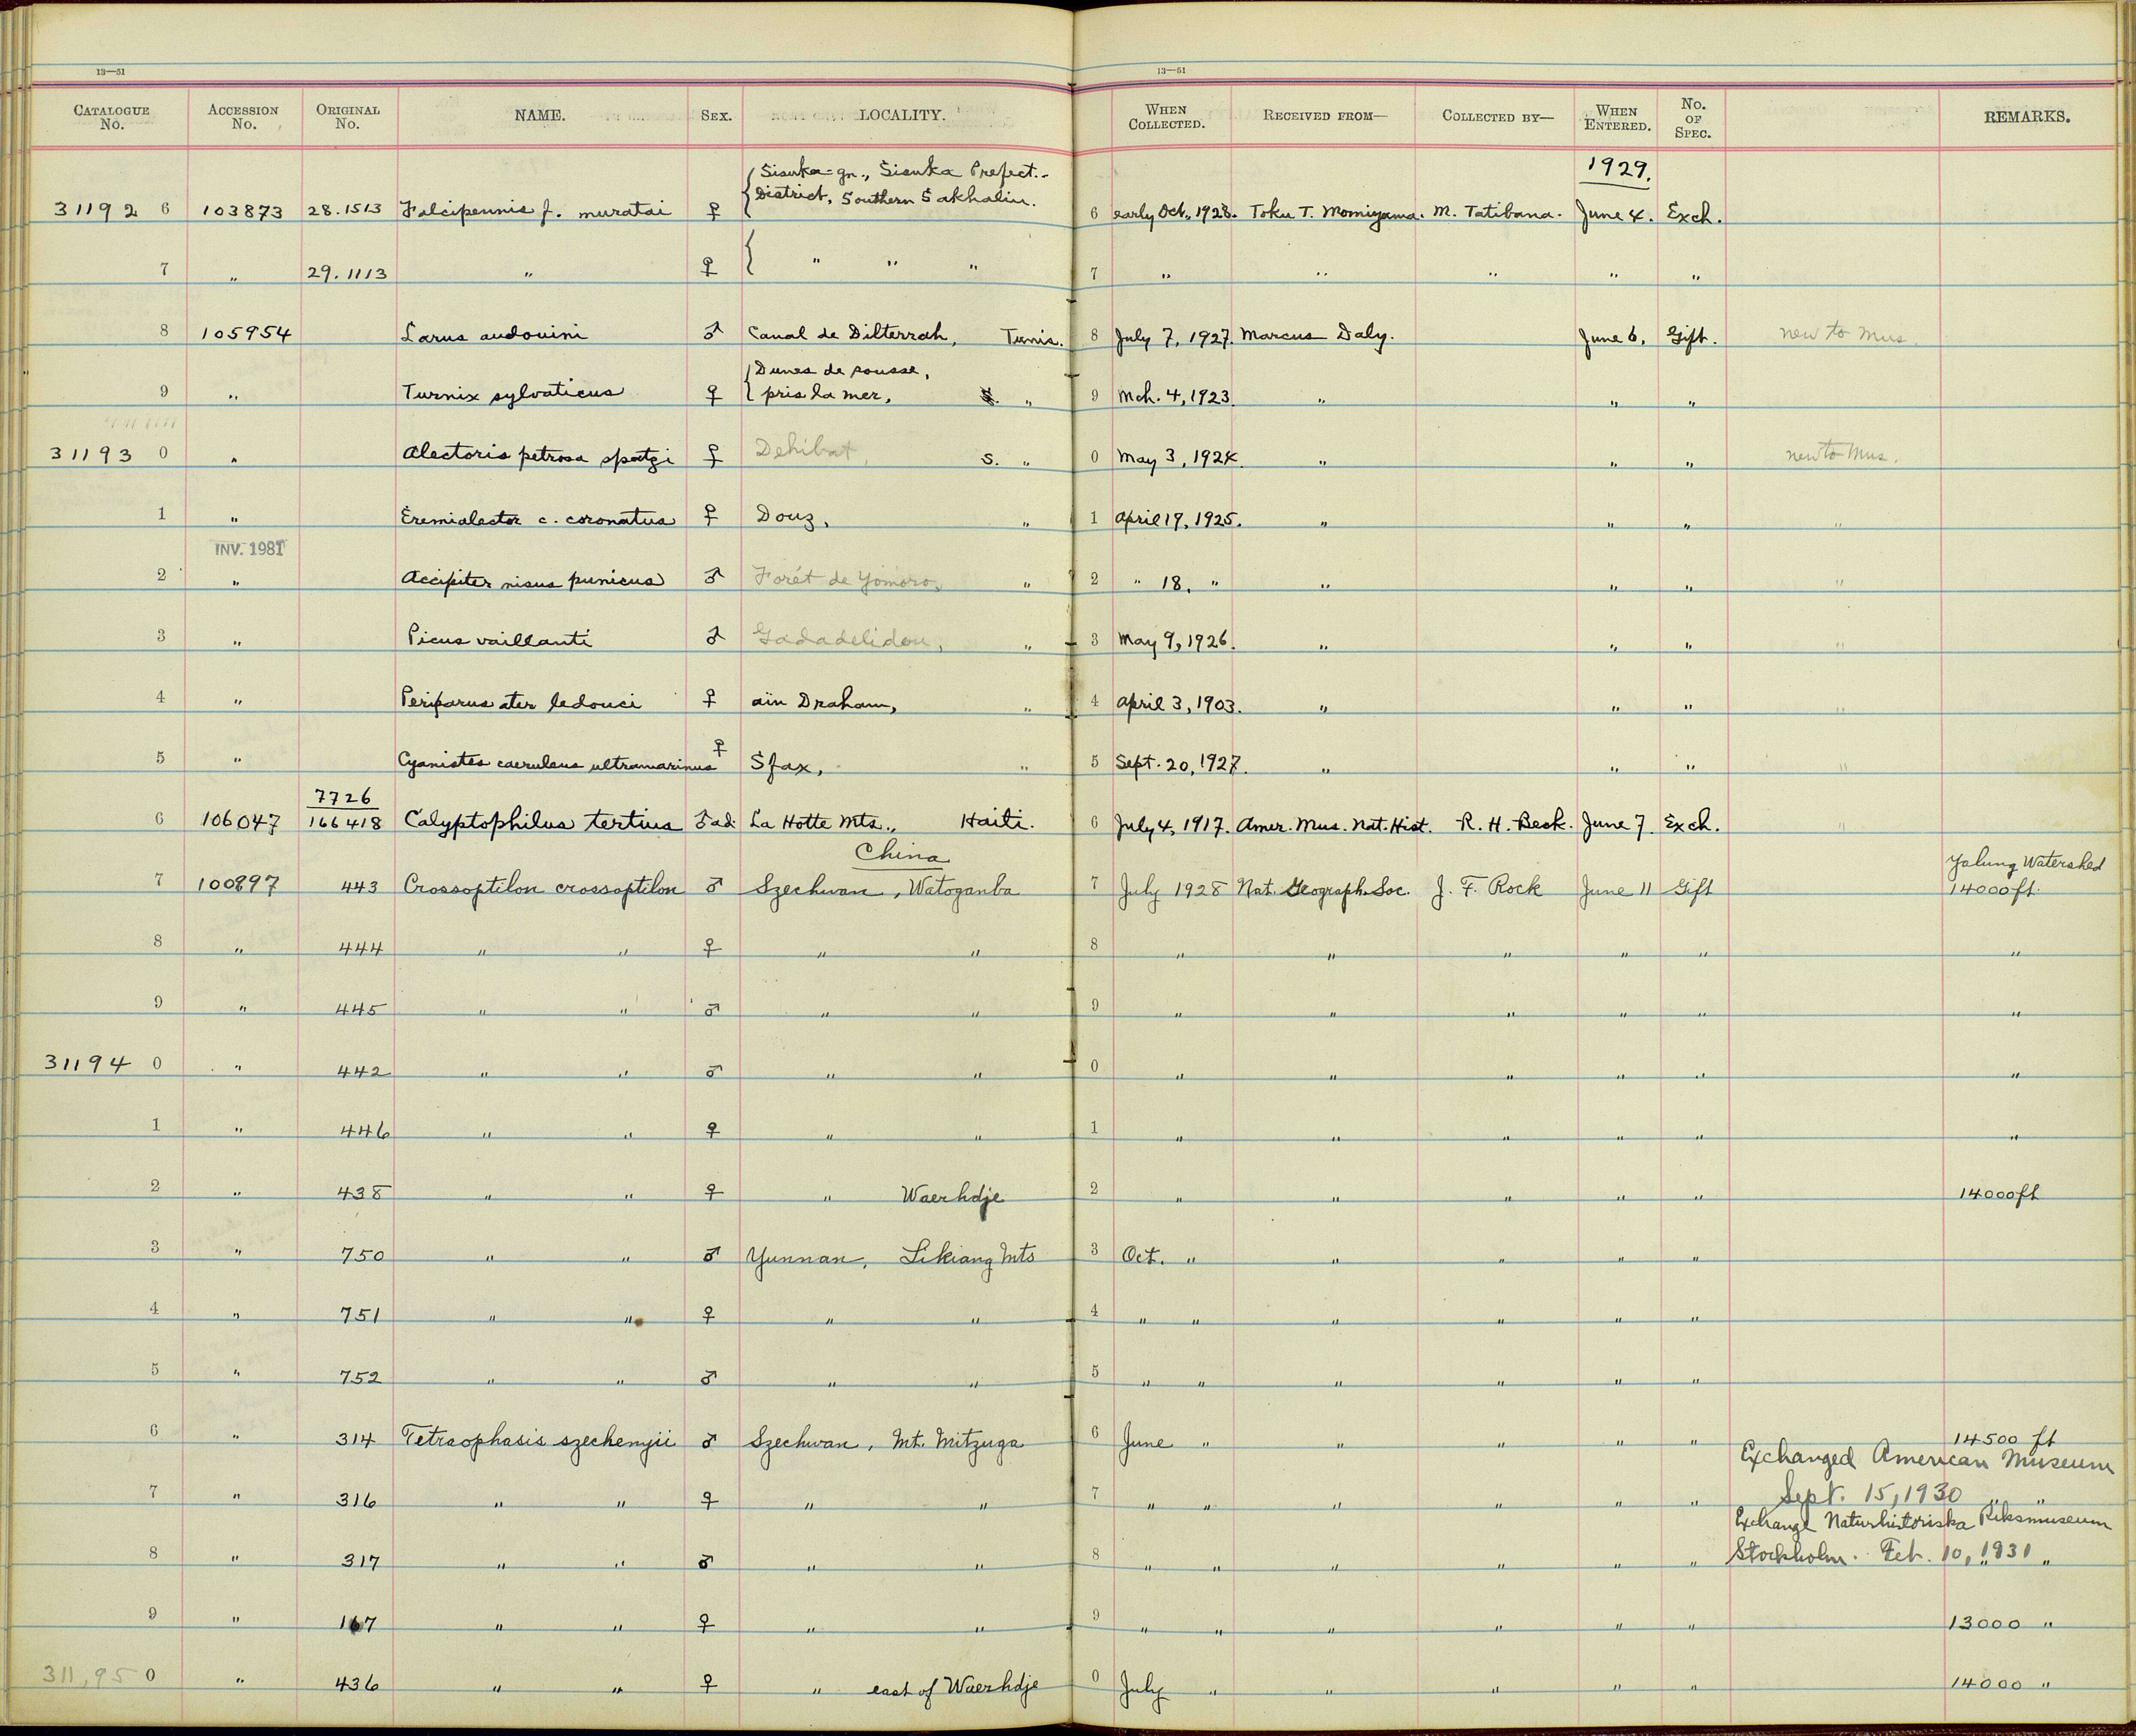 13—51 13—51
CATALOGUE No. ACCESSION No. ORIGINAL No. NAME. SEX. LOCALITY. WHEN COLLECTED. RECEIVED FROM— COLLECTED BY— WHEN ENTERED. No. OF SPEC. REMARKS.
1929.
Sisuka-gn., Sisuka Prefect.-
District, Southern Sakhalin.
31192 6 103873 28.1513 Falcipennis f. muratai ♀ 6 early Oct., 1928. Toku T. Momiyama. M. Tatibana. June 4. Exch.
7 " 29.1113 " ♀ " " " 7 " " " " "
8 105954 Larus audouini ♂ Canal de Dilterrah, Tunis. 8 July 7, 1927. Marcus Daly. June 6, Gift. new to Mus.
Dunes de sousse,
9 " Turnix sylvaticus ♀ pris la mer, " 9 Mch. 4, 1923. " " "
31193 0 " Alectoris petrosa spatzi ♀ Dehibat, S. " 0 May 3, 1924. " " " new to Mus.
1 " Eremialector c. coronatus ♀ Douz, " 1 April 19, 1925. " " " "
INV. 1981
2 " Accipiter nisus punicus ♂ Forêt de Yomoro, " 2 " 18. " " " " "
3 " Picus vaillanti ♂ Gadadelidou, " 3 May 9, 1926. " " " "
4 " Periparus ater ledouci ♀ aïn Draham, " 4 April 3, 1903. " " " "
5 " Cyanistes caeruleus ultramarinus ♀ Sfax, " 5 Sept. 20, 1927. " " " "
7726
6 106047 166418 Calyptophilus tertius ♂ ad. La Hotte Mts., Haiti. 6 July 4, 1917. Amer. Mus. Nat. Hist. R. H. Beck. June 7. Exch. "
China
Yalung Watershed
7 100897 443 Crossoptilon crossoptilon ♂ Szechwan, Watoganba 7 July 1928 Nat. Geograph. Soc. J. F. Rock June 11 Gift 14000 ft.
8 " 444 " " ♀ " " 8 " " " " " "
9 " 445 " " ♂ " " 9 " " " " " "
31194 0 " 442 " " ♂ " " 0 " " " " " "
1 " 446 " " ♀ " " 1 " " " " " "
2 " 438 " " ♀ " Waerhdje 2 " " " " " 14000 ft
3 " 750 " " ♂ Yunnan, Likiang Mts 3 Oct. " " " " "
4 " 751 " " ♀ " " 4 " " " " " "
5 " 752 " " ♂ " " 5 " " " " " "
6 " 314 Tetraophasis szechenyii ♂ Szechwan, Mt. Mitzuga 6 June " " " " " 14500 ft
Exchanged American Museum
7 " 316 " " ♀ " " 7 " " " " " " Sept. 15, 1930 " "
Exchange Naturhistoriska Riksmuseum
8 " 317 " " ♂ " " 8 " " " " " " Stockholm. Feb. 10, 1931 " "
9 " 167 " " ♀ " " 9 " " " " " " 13000 "
311,95 0 " 436 " " ♀ " east of Waerhdje 0 July " " " " " 14000 "